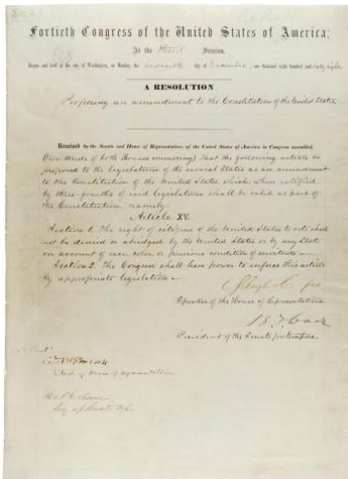 Fortieth Congress of the United States of America;
At the Third Session,
Begun and held at the city of Washington, on Monday, the seventh day of December, one thousand eight hundred and sixty-eight.
A RESOLUTION
Proposing an amendment to the Constitution of the United States.
Resolved by the Senate and House of Representatives of the United States of America in Congress assembled,
(two thirds of both Houses concurring) That the following article be
proposed to the legislatures of the several States as an amendment
to the Constitution of the United States, which, when ratified
by three fourths of said legislatures shall be valid as part of
the Constitution, namely:
Article XV.
Section 1. The right of citizens of the United States to vote shall
not be denied or abridged by the United States or by any State
on account of race, color, or previous condition of servitude—
Section 2. The Congress shall have power to enforce this article
by appropriate legislation—
Speaker of the House of Representatives
President of the Senate pro tempore
Attest
Clerk of House of Representatives